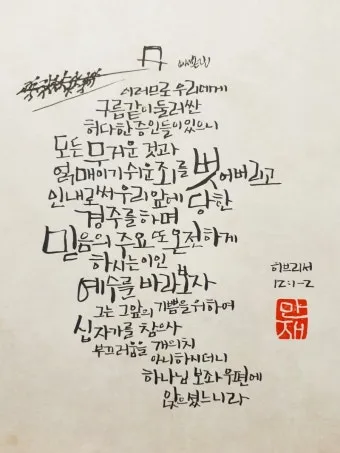 이러므로 우리에게
구름같이 둘러싼
허다한 증인들이 있으니
모든 무거운 것과
얽매이기 쉬운 죄를 벗어버리고
인내로써 우리 앞에 당한
경주를 하며
믿음의 주요 또 온전하게
하시는 이인
예수를 바라보자
그는 그 앞의 기쁨을 위하여
십자가를 참으사
부끄러움을 개의치
아니하시더니
하나님 보좌 우편에
앉으셨느니라
히브리서
12:1-2
만재